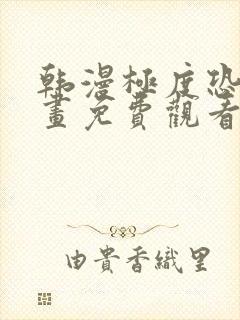 韩漫極度恐
畫免費觀看
由貴香織里